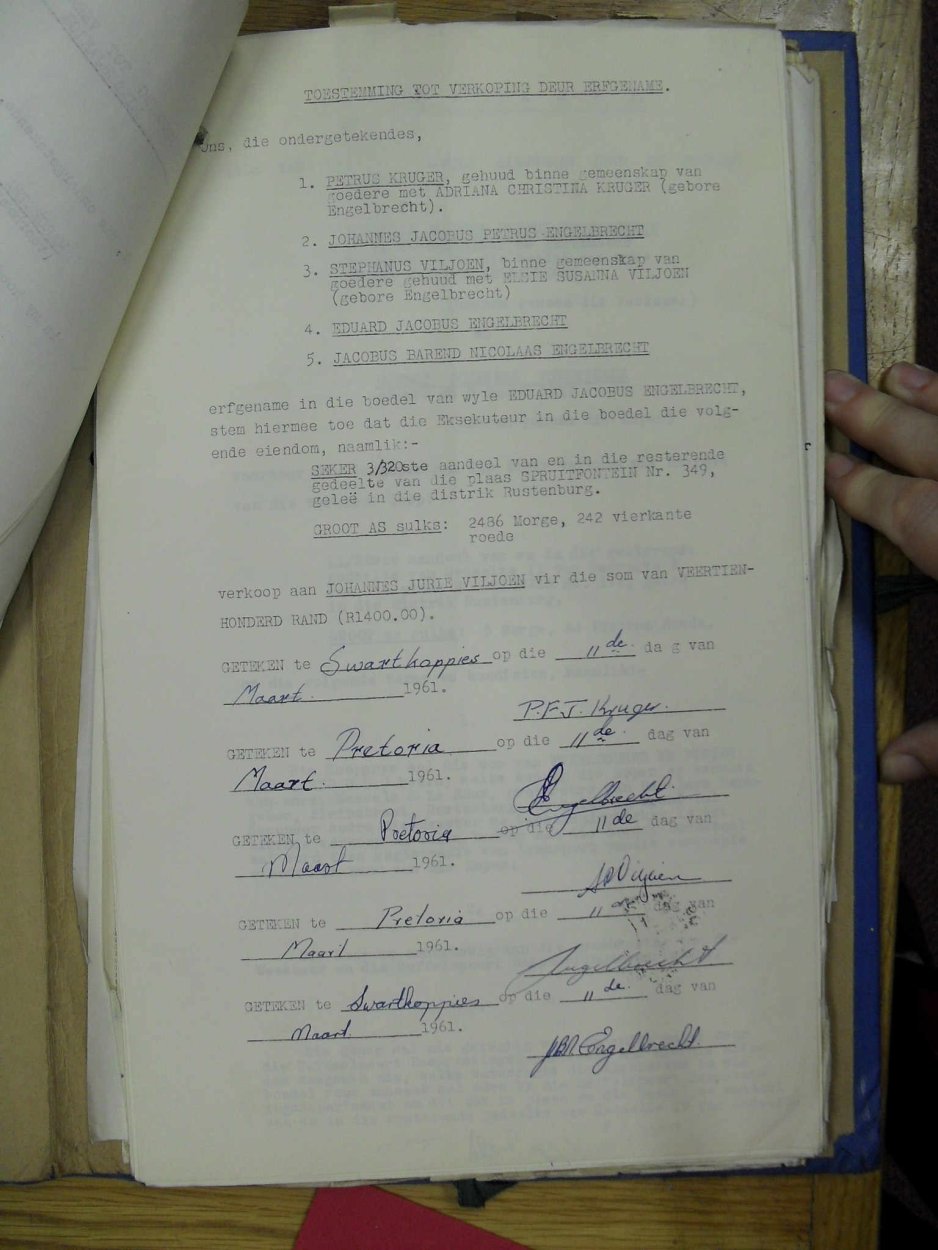 TOESTEMMING TOT VERKOPING DEUR ERFGENAME.
Ons, die ondergetekendes,
1. PETRUS KRUGER, gehuud binne gemeenskap van
goedere met ADRIANA CHRISTINA KRUGER (gebore
Engelbrecht).
2. JOHANNES JACOBUS PETRUS ENGELBRECHT
3. STEPHANUS VILJOEN, binne gemeenskap van
goedere gehuud met ELSIE SUSANNA VILJOEN
(gebore Engelbrecht)
4. EDUARD JACOBUS ENGELBRECHT
5. JACOBUS BAREND NICOLAAS ENGELBRECHT
erfgename in die boedel van wyle EDUARD JACOBUS ENGELBRECHT,
stem hiermee toe dat die Eksekuteur in die boedel die volg-
ende eiendom, naamlik:-
SEKER 3/320ste aandeel van en in die resterende
gedeelte van die plaas SPRUITFONTEIN Nr. 349,
geleë in die distrik Rustenburg.
GROOT AS sulks: 2486 Morge, 242 vierkante
roede
verkoop aan JOHANNES JURIE VILJOEN vir die som van VEERTIEN-
HONDERD RAND (R1400.00).
GETEKEN te Swartkoppies op die 11de. da g van
Maart. 1961.
P.F.J. Kruger.
GETEKEN te Pretoria op die 11de dag van
Maart. 1961.
Engelbrecht.
GETEKEN te Pretoria op die 11de dag van
Maart 1961.
Viljoen
GETEKEN te Pretoria op die 11de dag van
Maart 1961.
Engelbrecht
GETEKEN te Swartkoppies op die 11de. dag van
Maart 1961.
JBN Engelbrecht.